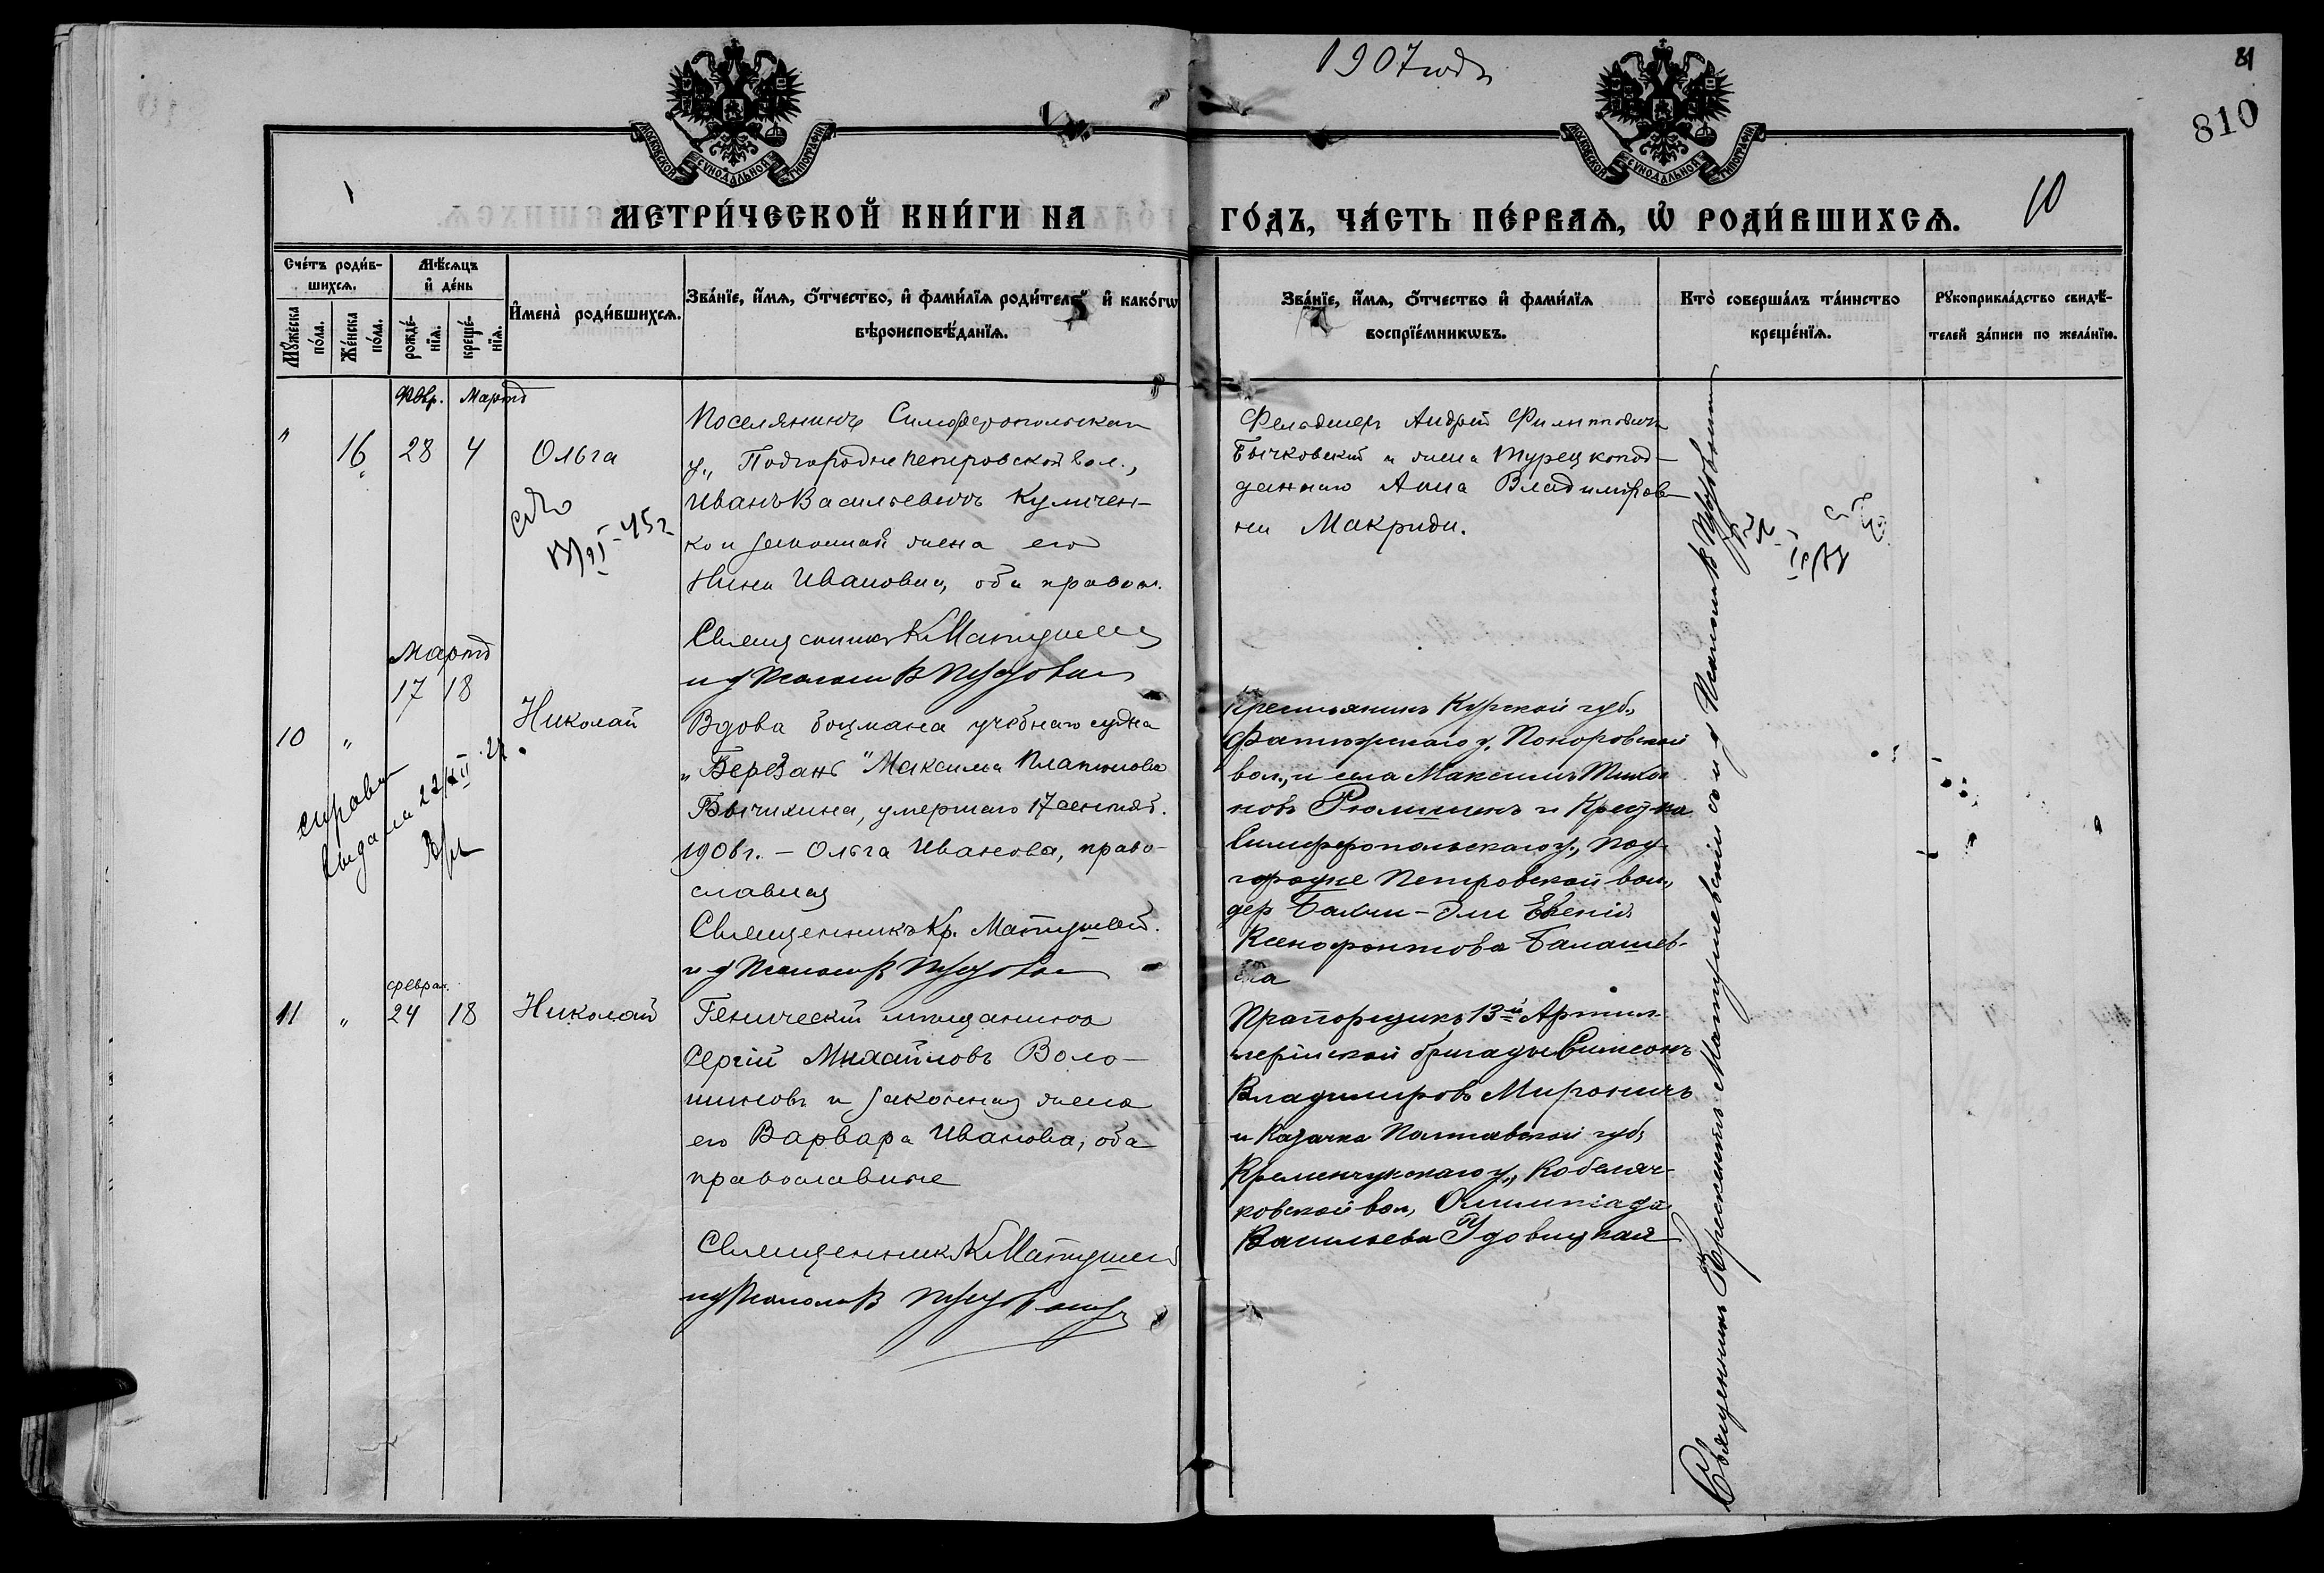 1907 года
81
810
МОСКОВСКОЙ СѴНОДАЛЬНОЙ ТИПОГРАФІИ
МОСКОВСКОЙ СѴНОДАЛЬНОЙ ТИПОГРАФІИ
1
МЕТРИ́ЧЕСКОЙ КНИ́ГИ НА
ГО́ДЪ, ЧА́СТЬ ПЕ́РВАѦ, Ѡ҆ РОДИ́ВШИХСѦ.
10
Сче́тъ роди́в-
шихсѧ.
Мꙋ́жеска по́ла.
Же́нска по́ла.
Мѣ́сѧцъ
и҆ де́нь
рожде́-нїѧ.
креще́-нїѧ.
И҆мена̀ роди́вшихсѧ.
Зва́нїе, и҆́мѧ, ѻ҆́тчество, и҆ фами́лїѧ роди́телей и҆ како́гѡ
вѣроисповѣ́данїѧ.
Зва́нїе, и҆́мѧ, ѻ҆́тчество и҆ фами́лїѧ
воспрїе́мникѡвъ.
Кто̀ соверша́лъ та́инство
креще́нїѧ.
Рꙋкоприкла́дство свидѣ́-
телей за́писи по жела́нїю.
Февр. Марта
" 16 28 4 Ольга
Поселянинъ Симферопольскаго
у., Подгородне Петровской вол.,
Иванъ Васильевичъ Куличен-
ко и законная жена его
Нина Ивановна, оба правосл.
Священникъ К Матушев
и д Псалом В
Фельдшеръ Андрей Филипповичъ
Бычковскій и жена Турецкопод-
даннаго Анна Владимиров-
на Макриди.
Марта
10 " 17 18 Николай
справка
выдана 22/XII 24
Вдова боцмана учебнаго судна
„Березань" Максима Платонова
Бычихина, умершаго 17 сентяб.
1906 г. – Ольга Иванова, право-
славная
Священникъ Кр. Матушев.
и д Псалом В
Крестьянинъ Курской губ.,
Фатежскаго у. Покоровской
вол., и села Максимъ Тихо
новъ Рюмшинъ и Кре-ка
Симферопольскаго у., Под-
городне Петровской вол.,
дер Бахчи-Эли Евгенія
Ксенофонтова Балашев-
ска
феврал.
11 " 24 18 Николай
Генический мещанинъ
Сергій Михайловъ Воло-
шиновъ и законная жена
его Варвара Иванова, оба
православные
Священникъ К Матушев
и д Псалом В
Прапорщикъ 13й Артил-
лерійской бригады Симеонъ
Владимировъ Мироничъ
и Казачка Полтавской губ,
Кременчугскаго у., Кобеляч-
ковской вол, Олимпіада
Васильева Удовицкая
Священникъ Крискентъ Матушевскій и и д Псаломщ. В